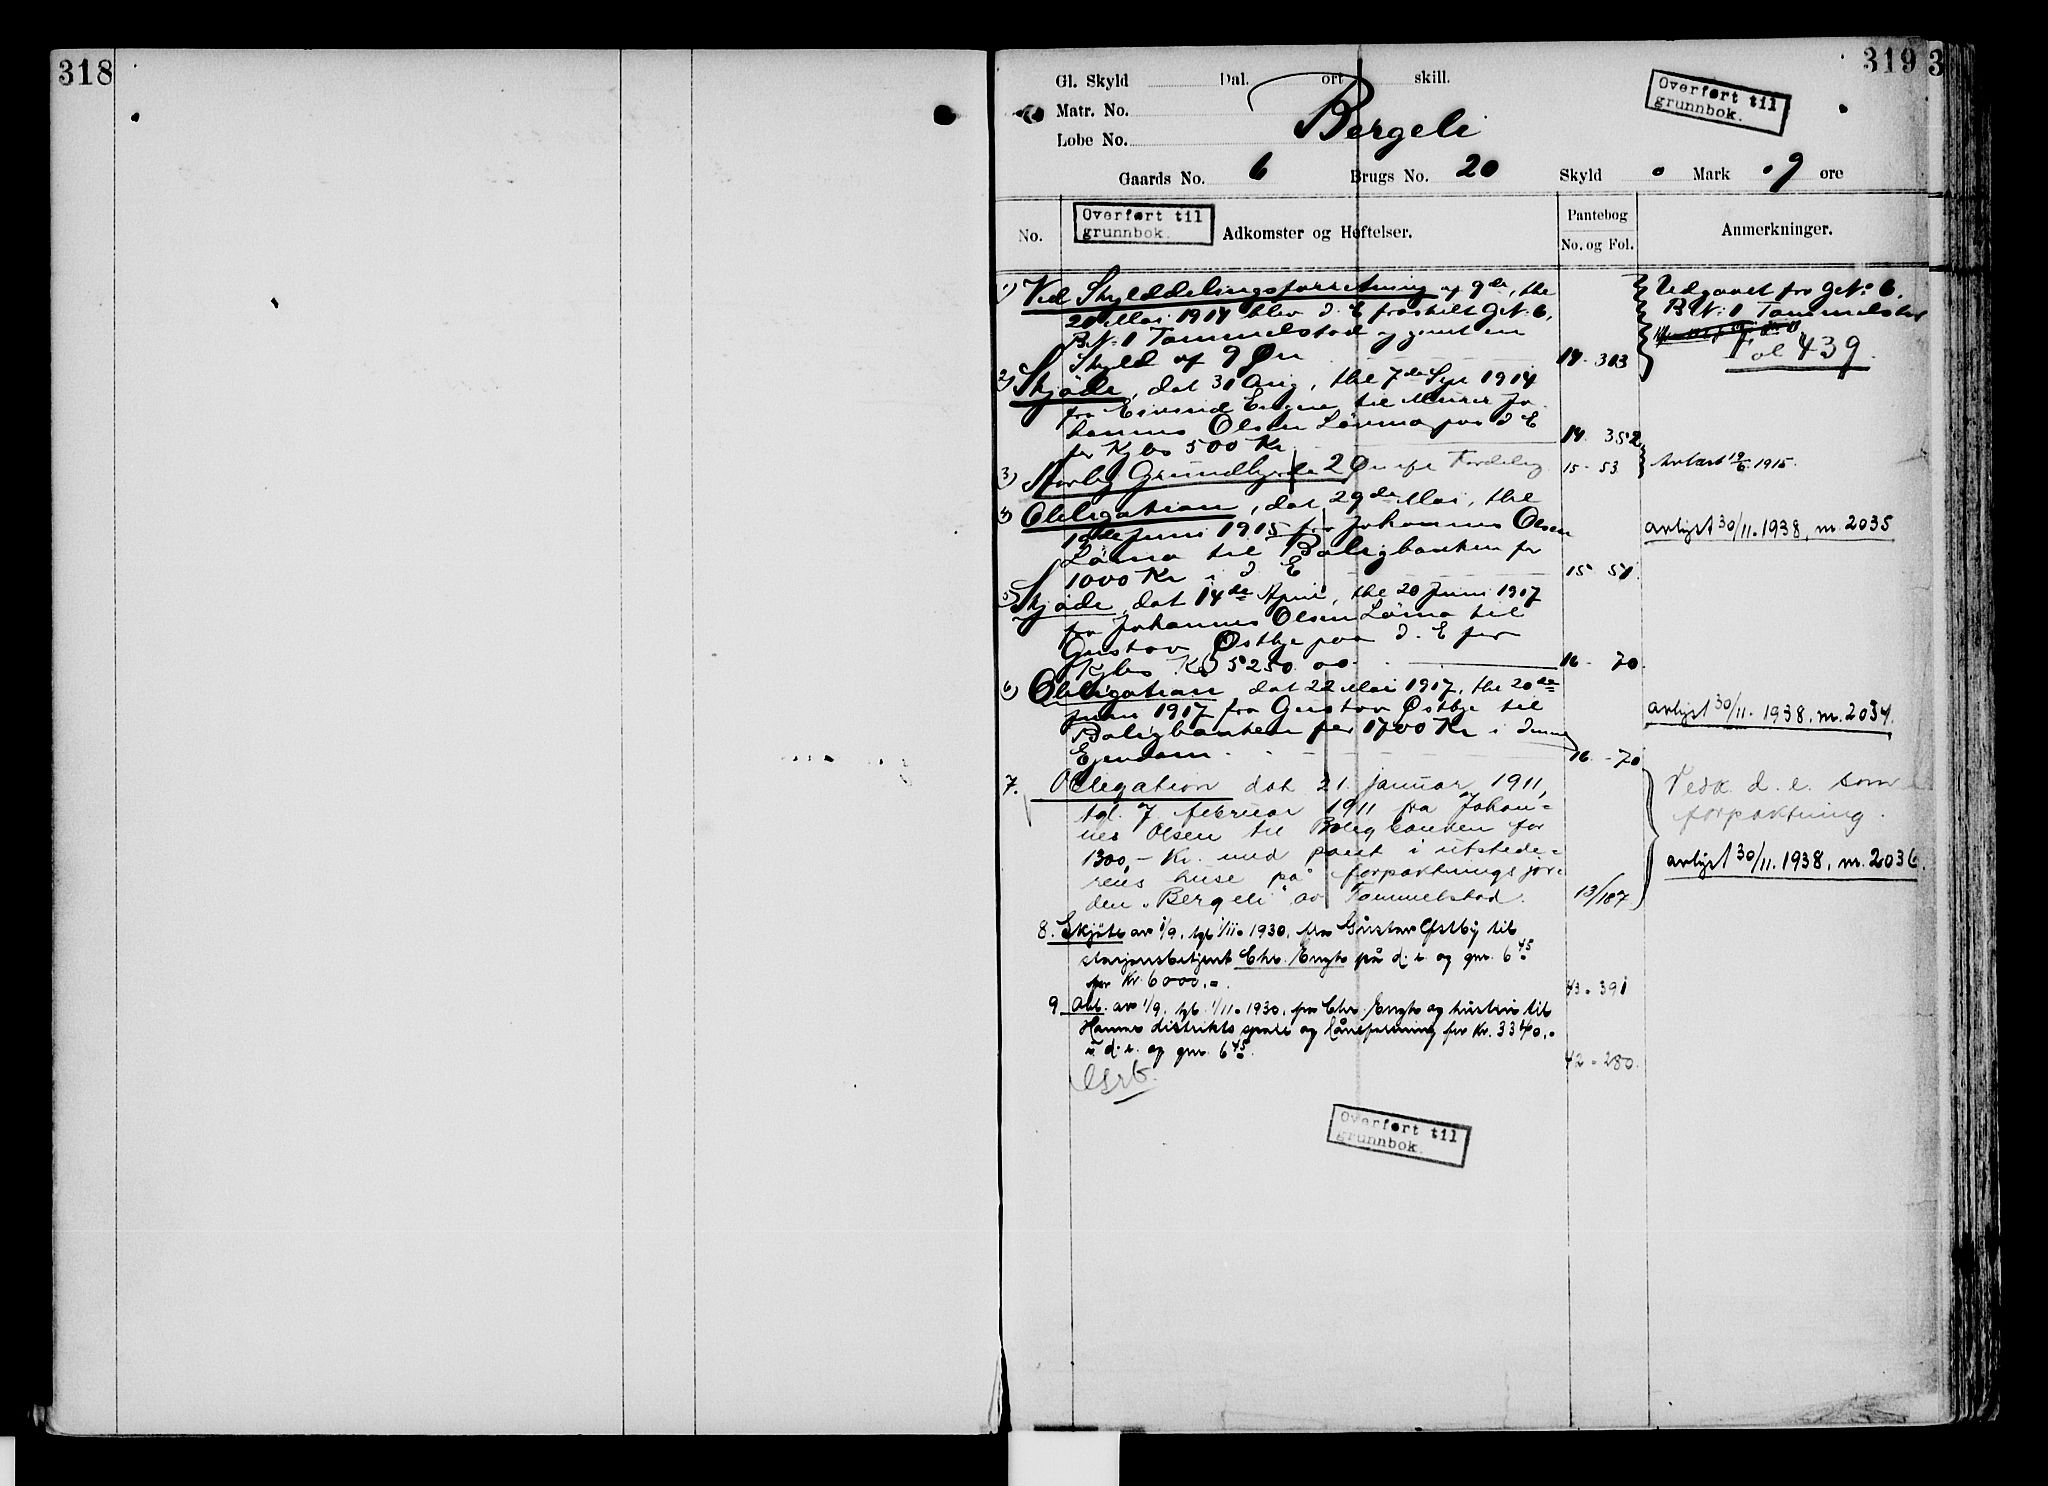 318
319
3
Gl. Skyld Dal. ort skill.
Overført til
grunnbok.
Matr. No.
Bergeli
Lobe No.
Gaards No. 6 Brugs No. 20 Skyld 0 Mark 09 ore
Overført til
grunnbok.
No. Adkomster og Heftelser.
Pantebog
No. og Fol.
Anmerkninger.
1) Ved Skylddelingsforretning af 9de, thl
20 Mai 1914 blev d. E fraskilt G.N. 6,
B.N. 1 Tommelstad og givet en
Skyld af 9 Øre 14 - 313
Udgaaet fra G.No 6.
B.N. 1 Tommelstad
Fol 439.
2) Skjøde, dat 31 Aug, thl 7de Sep 1914
fra Eivind Engen til Murer Jo-
hannes Olsen Løvma paa d E
for Kjbs 500 Kr 14 - 352
3) Aarlig Grundbyrde 2 Øre efter Fordeling 15 - 53
Avløst 19/6 1915.
4) Obligation, dat 29de Mai, thl
19de Juni 1915 fra Johannes Olsen
til Boligbanken for
1000 Kr i d E 15 51
avlyst 30/11. 1938, nr. 2035
5) Skjøde, dat 14de April, thl 20 Juni 1917
fra Johannes Olsen til
Gustav Østbye paa d. E for
Kjbs Kr 5250.00. 16 - 70
6) Obligation dat 22 Mai 1917, thl 20de
Juni 1917 fra Gustav Østbye til
Boligbanken for 1700 Kr i denne
Ejendom. 16 - 70
avlyst 30/11. 1938, nr. 2034.
7. Obligation dat 21. januar 1911,
tgl. 7 februar 1911 fra Johan-
nes Olsen til Boligbanken for
1300,- Kr. med pant i utstede-
rens huse på forpaktningsjor-
den "Bergeli" av Tommelstad. 13/187
Vedr. d. e. som
forpaktning.
avlyst 30/11. 1938, nr. 2036.
8. Skjøte av 1/9, tgl 1/11. 1930, fra Gustav Østby til
stasjonsbetjent Chr. Engh på d. e. og gnr. 6 45
for Kr. 6000.- 43 - 391
9. Obl. av 1/9, tgl. 1/11. 1930, fra Chr. Engh og hustru til
Hamar distrikts spare og låneforening for Kr. 3340.-
i d. e. og gnr. 6 45. 42 - 280.
Overført til
grunnbok.